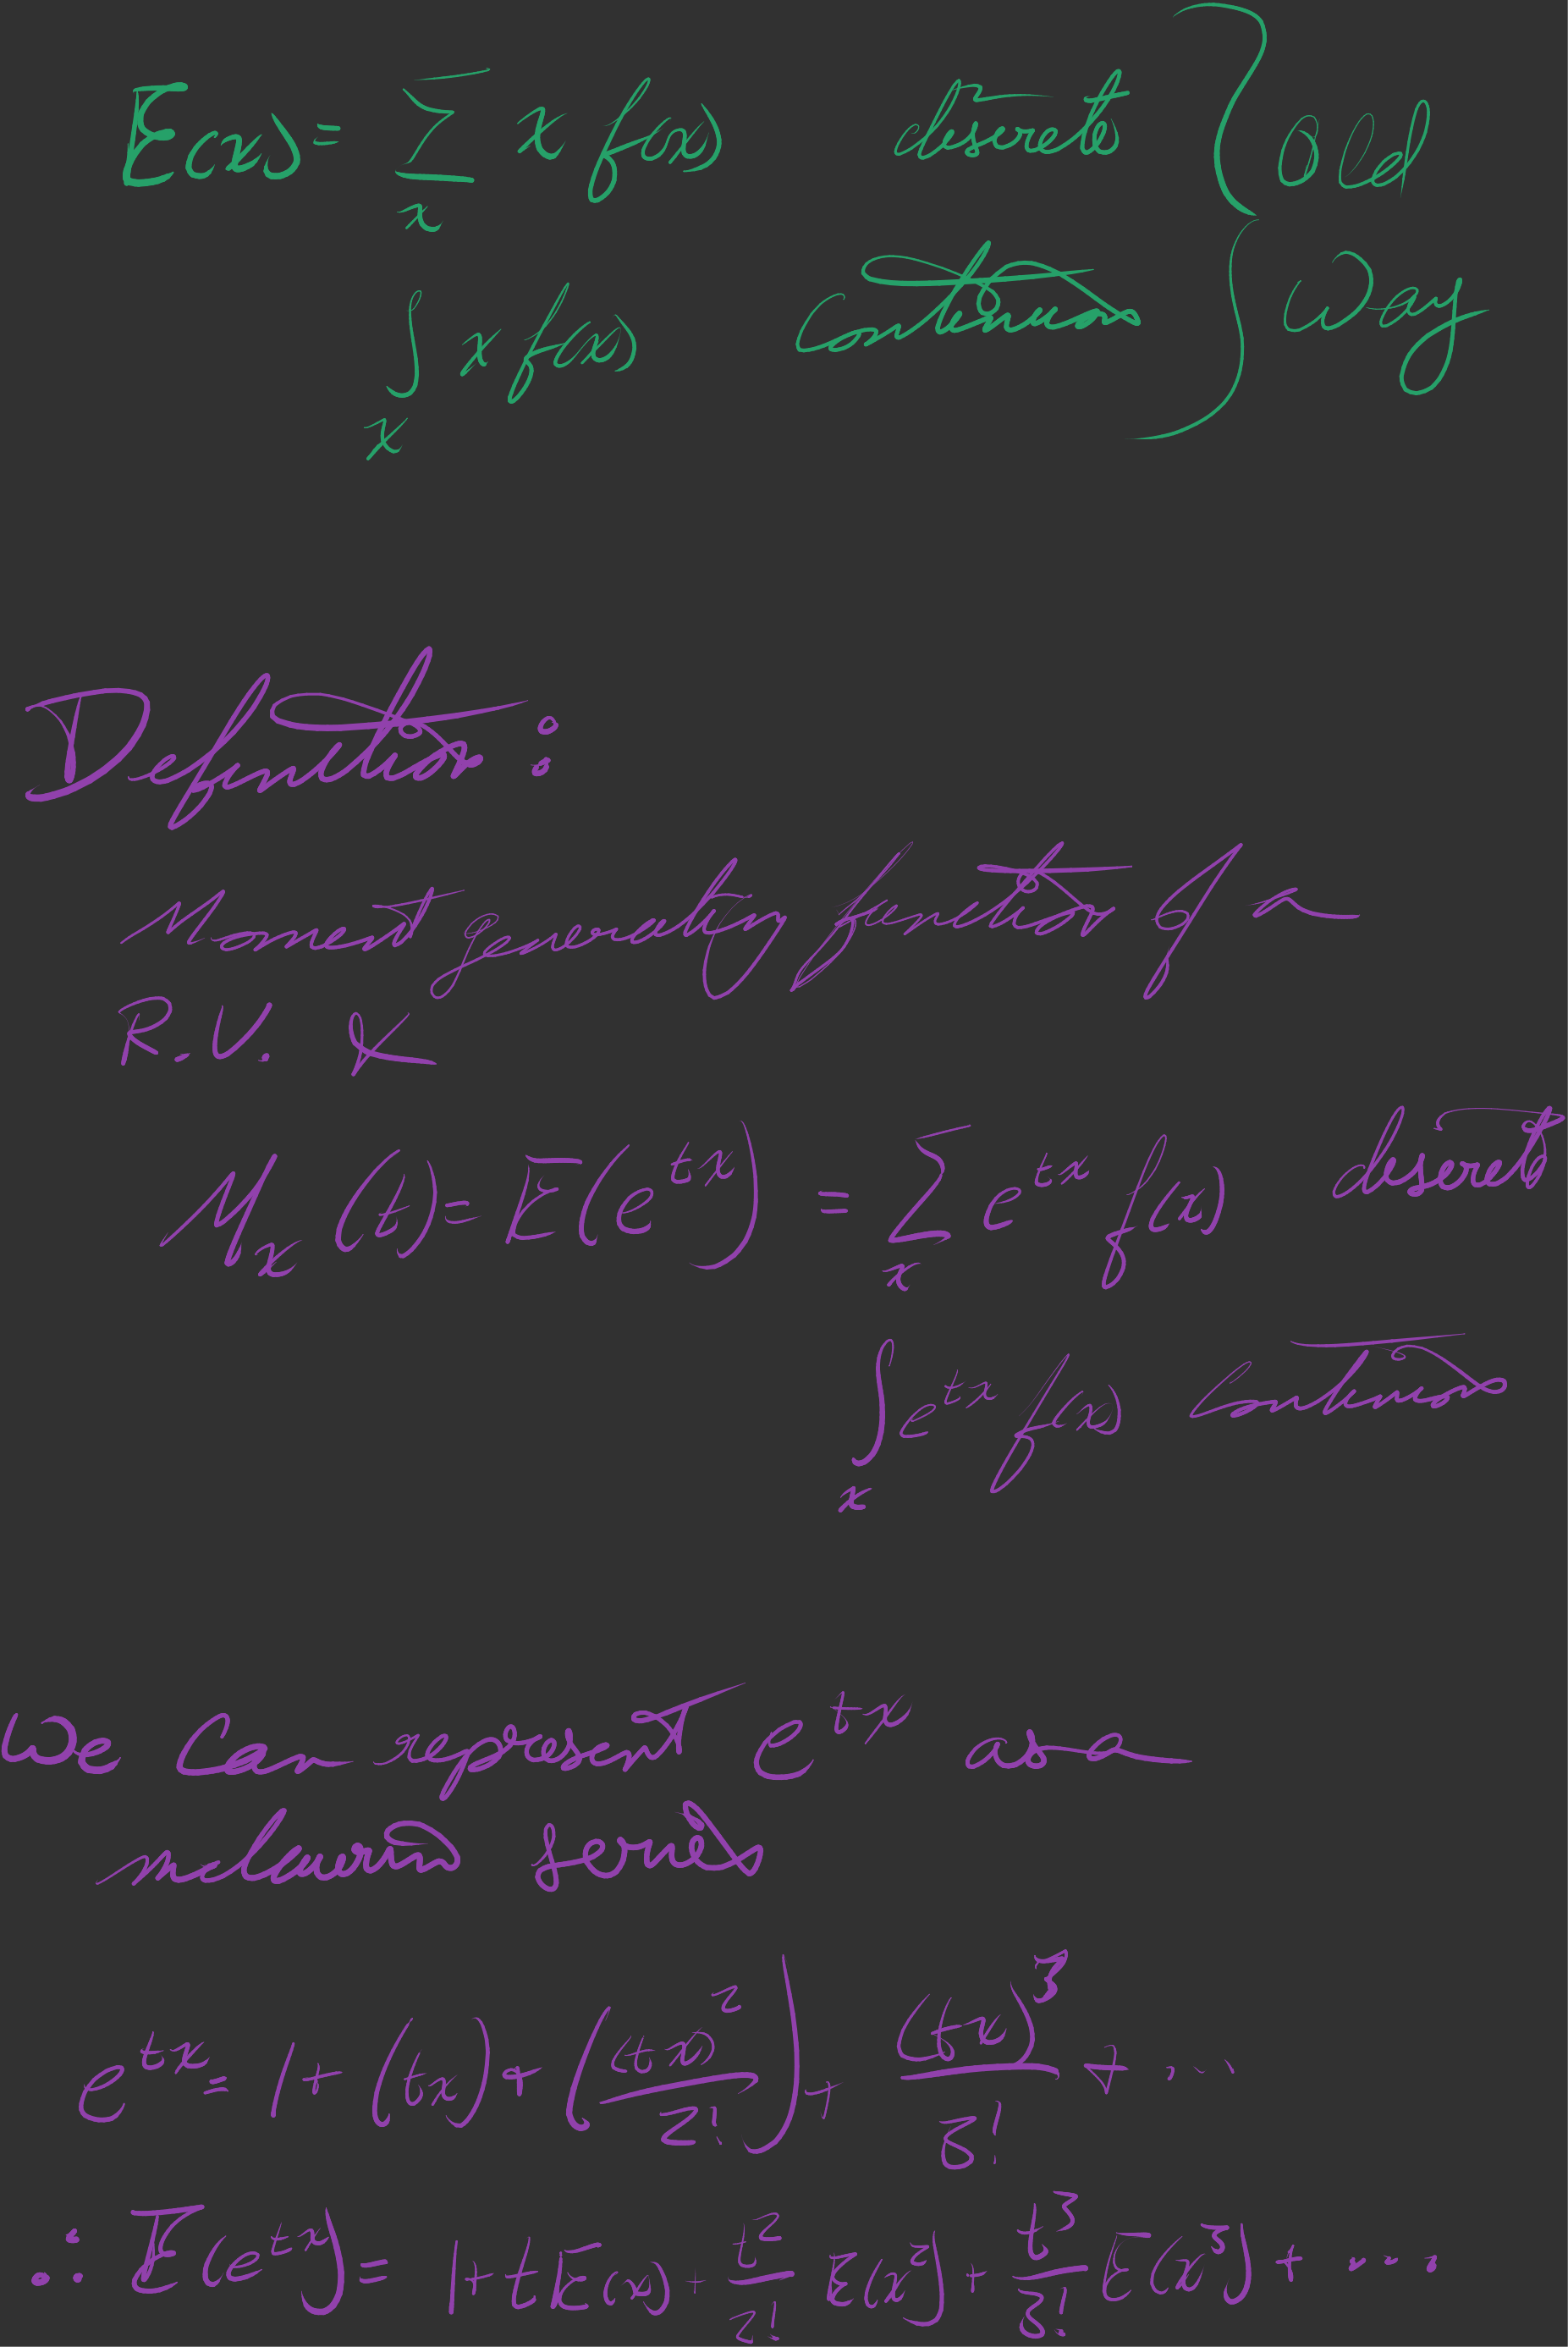 E(x) = Σ x f(x) discrete } old
x
∫ x f(x) continuous } way
x
Definition :
Moment generating function of a
R.V. X
M_x (t) = E(e^{tx}) = Σ e^{tx} f(x) discrete
x
∫ e^{tx} f(x) continuous
x
We can represent e^{tx} as a
series
e^{tx} = 1 + (tx) + ((tx)^2 / 2!) + (tx)^3 / 3! + ...
∴ E(e^{tx}) = 1 + t E(x) + t^2 / 2! E(x^2) + t^3 / 3! E(x^3) + ...